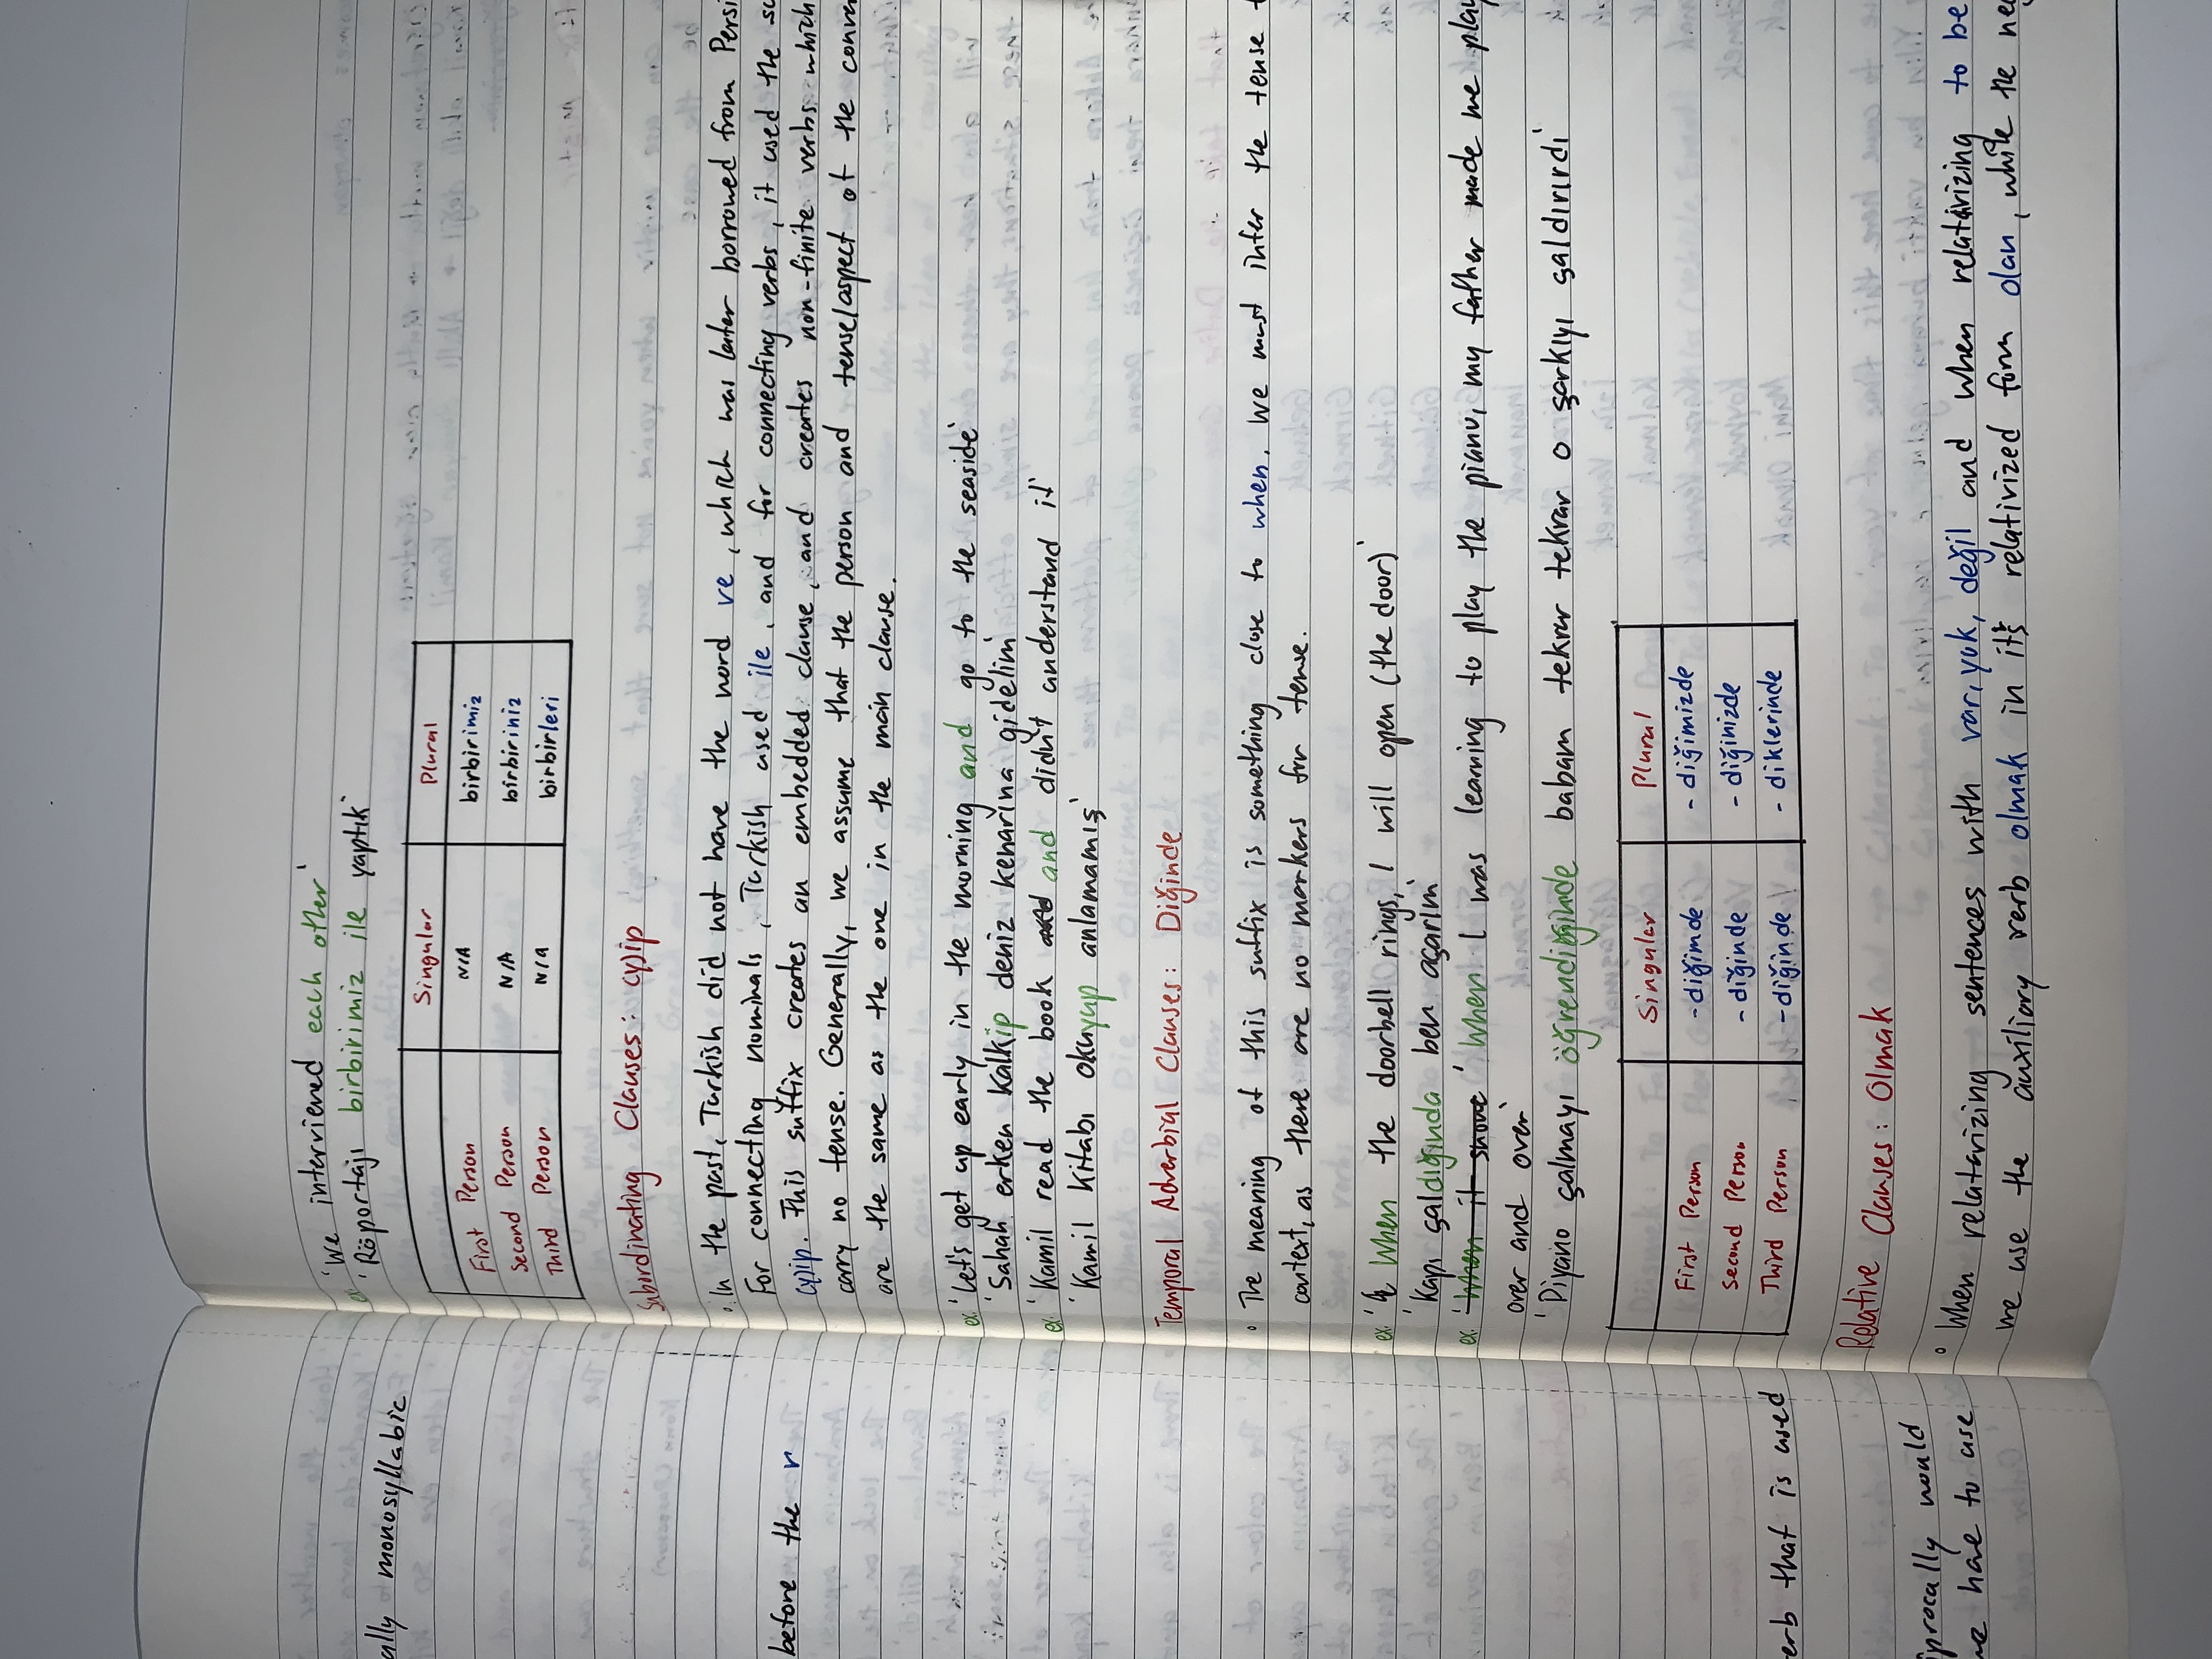 ally monosyllabic
before the n
erb that is used
iprocally would
we have to use
'We interviened each other'
ex: 'Röportajı birbirimiz ile yaptık'
Singular Plural
First Person N/A birbirimiz
Second Person N/A birbiriniz
Third Person N/A birbirleri
Subordinating Clauses: (y)ip
In the past, Turkish did not have the word ve, which was later borrowed from Persi
For connecting nominals, Turkish used ile, and for connecting verbs, it used the su
(y)ip. This suffix creates an embedded clause, and creates non-finite verbs which
carry no tense. Generally, we assume that the person and tense/aspect of the conver
are the same as the one in the main clause.
ex: 'Let's get up early in the morning and go to the seaside'
'Sabah erken kalkıp deniz kenarına gidelim'
ex: 'Kamil read the book and and didn't understand it'
'Kamil kitabı okuyup anlamamış'
Temporal Adverbial Clauses: Diğinde
The meaning of this suffix is something close to when. We must infer the tense
context, as there are no markers for tense.
ex: 'When the doorbell rings, I will open (the door)'
'Kapı çaldığında ben açarım'
ex: 'When it snow' 'When I was learning to play the piano, my father made me play
over and over'
'Piyano çalmayı öğrendiğinde babam tekrar tekrar o şarkıyı çaldırırdı'
Singular Plural
First Person -diğimde -diğimizde
Second Person -diğinde -diğinizde
Third Person -diğinde -diklerinde
Relative Clauses: Olmak
When relatarizing sentences with var, yok, değil and when relatarizing to be
we use the auxiliary verb olmak in its relativized form olan, while the neg